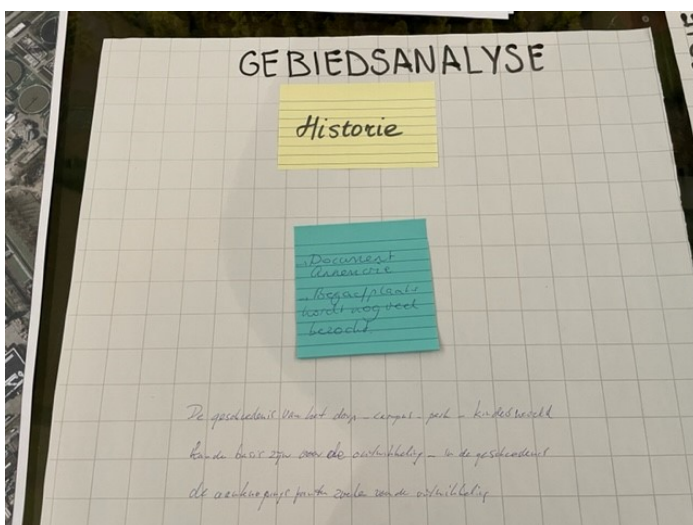 GEBIEDSANALYSE
Historie
- Document
- Begraafplaats
wordt nog veel
bezocht
De geschiedenis van het dorp - campus - park - kinderwereld
kan de basis zijn voor de ontwikkeling - in de geschiedenis
de aanknopings punten zoeken van de ontwikkeling